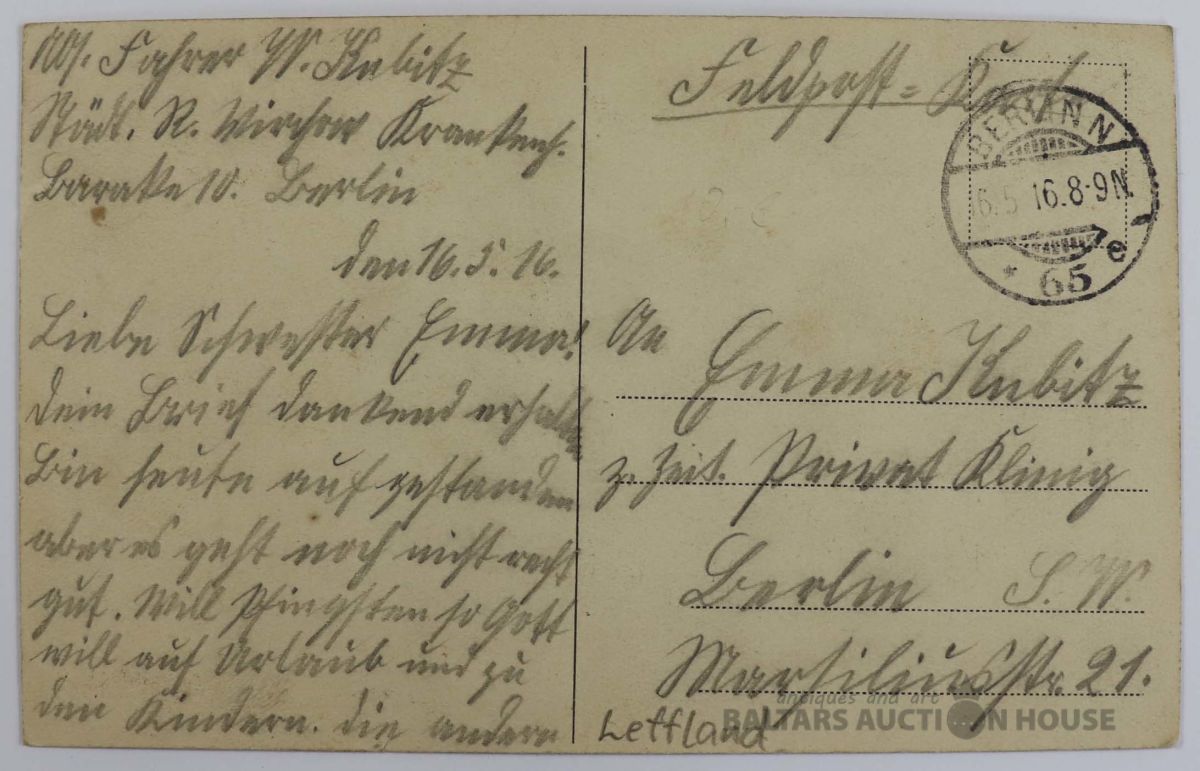 Fahrer W. Kubitz
Städt. R. Virchow Krankenh.
Baracke 10. Berlin
den 16.5.16.
Liebe Schwester Emma!
Dein Brief dankend erhalten
Bin heute auf gestanden
aber es geht noch nicht recht
gut. Will Pfingsten so Gott
will auf Urlaub und zu
den Kindern. die andern
Feldpost=
BERLIN N
16.5 16.8-9N.
* 65 e
An
Emma Kubitz
z. Zeit. Privat Klinig
Berlin S.W.
Marsiliusstr. 21.
Lettland
antiques and art
BALTARS AUCTION HOUSE